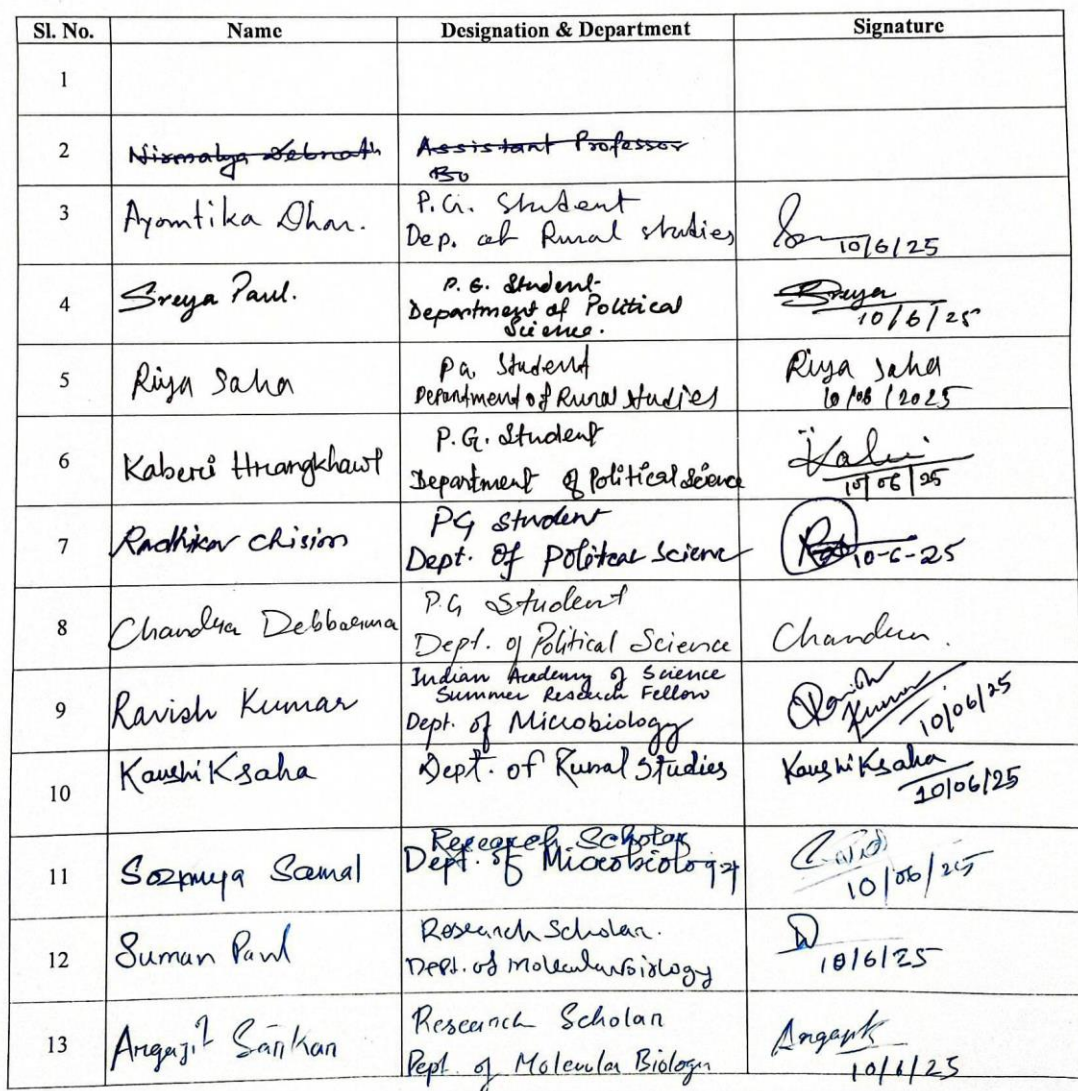 Sl. No. Name Designation & Department Signature
1
2 Nirmalya Debnath Assistant Professor
3 Ayomtika Dhar. P.G. Student
Dep. of Rural studies
10/6/25
4 Sreya Paul. P.G. Student
Department of Political
Science.
Sreya
10/6/25
5 Riya Saha PG Student
Department of Rural studies
Riya Saha
10/06/2025
6 Kaberi Hrangkhawl P.G. Student
Department of Political Science
10/06/25
7 Radhika PG Student
Dept. Of Political Scienc
10-6-25
8 Debbarma P.G Student
Dept. of Political Science
9 Ravish Kumar Indian Academy of Science
Summer Research Fellow
Dept. of Microbiology
Ravish
Kumar
10/06/25
10 Kaushik Saha Dept. of Rural Studies
Kaushik Saha
10/06/25
11 Samal Research Scholar
Dept. of Microbiology
10/06/25
12 Suman Paul Research Scholar.
Dept. of Molecular Biology
10/6/25
13 Sarkar Research Scholar
Dept. of Molecular Biology
10/6/25